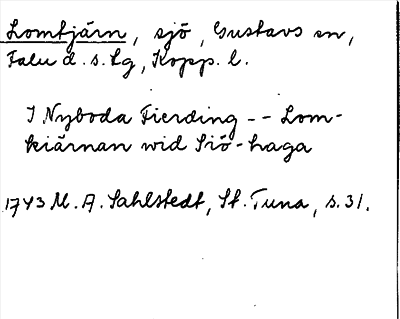 Lomtjärn, sjö, Gustavs sn,
Falu d.s. lg, Kopp. l.
I Nyboda Fierding -- Lom-
kiärnan wid Siö-haga
1743 M. A. Sahlstedt, St. Tuna, s. 31.